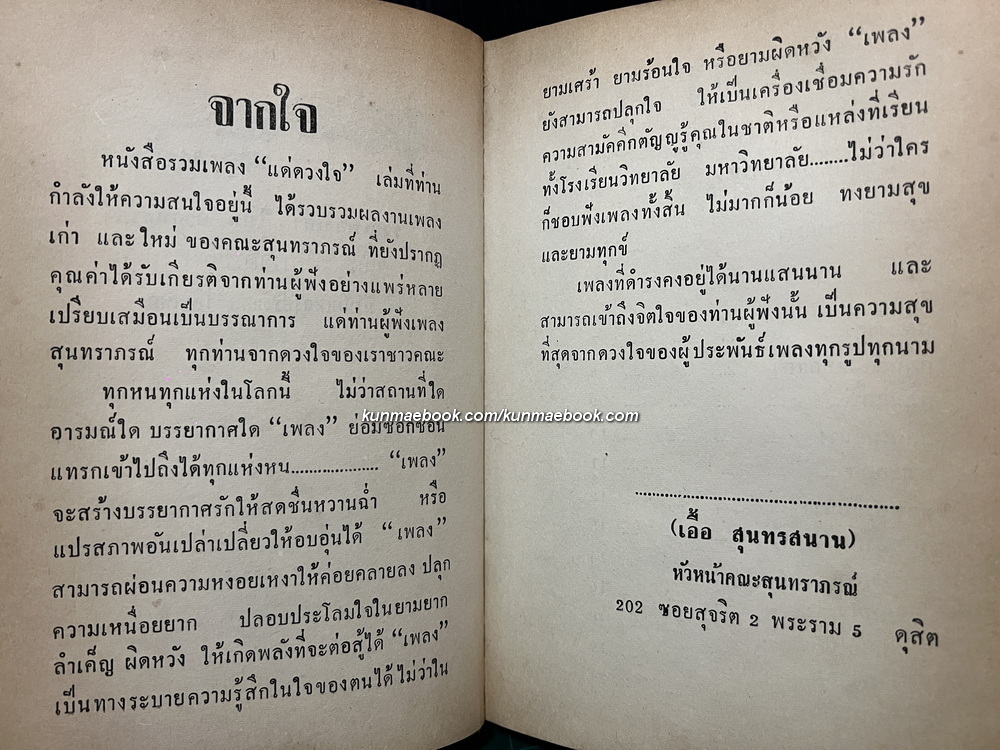 จากใจ
หนังสือรวมเพลง “แด่ดวงใจ” เล่มที่ท่าน
กำลังให้ความสนใจอยู่นี้ ได้รวบรวมผลงานเพลง
เก่า และใหม่ ของคณะสุนทราภรณ์ ที่ยังปรากฏ
คุณค่าได้รับเกียรติจากท่านผู้ฟังอย่างแพร่หลาย
เปรียบเสมือนเป็นบรรณาการ แด่ท่านผู้ฟังเพลง
สุนทราภรณ์ ทุกท่านจากดวงใจของเราชาวคณะ
ทุกหนทุกแห่งในโลกนี้ ไม่ว่าสถานที่ใด
อารมณ์ใด บรรยากาศใด “เพลง” ย่อมซอกซอน
แทรกเข้าไปถึงได้ทุกแห่งหน................... “เพลง”
จะสร้างบรรยากาศรักให้สดชื่นหวานฉ่ำ หรือ
แปรสภาพอันเปล่าเปลี่ยวให้อบอุ่นได้ “เพลง”
สามารถผ่อนความหงอยเหงาให้ค่อยคลายลง ปลุก
ความเหนื่อยยาก ปลอบประโลมใจในยามยาก
ลำเค็ญ ผิดหวัง ให้เกิดพลังที่จะต่อสู้ได้ “เพลง”
เป็นทางระบายความรู้สึกในใจของตนได้ ไม่ว่าใน
ยามเศร้า ยามร้อนใจ หรือยามผิดหวัง “เพลง”
ยังสามารถปลุกใจ ให้เป็นเครื่องเชื่อมความรัก
ความสามัคคีกตัญญูรู้คุณในชาติหรือแหล่งที่เรียน
ทั้งโรงเรียนวิทยาลัย มหาวิทยาลัย........ไม่ว่าใคร
ก็ชอบฟังเพลงทั้งสิ้น ไม่มากก็น้อย ทงยามสุข
และยามทุกข์
เพลงที่ดำรงคงอยู่ได้นานแสนนาน และ
สามารถเข้าถึงจิตใจของท่านผู้ฟังนั้น เป็นความสุข
ที่สุดจากดวงใจของผู้ประพันธ์เพลงทุกรูปทุกนาม
kunmaebook.com/kunmaebook.com
(เอื้อ สุนทรสนาน)
หัวหน้าคณะสุนทราภรณ์
202 ซอยสุจริต 2 พระราม 5 ดุสิต